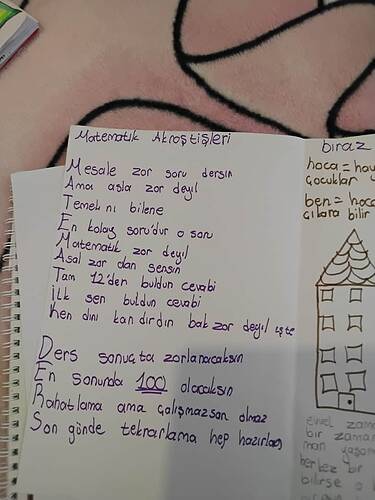 Matematik Akroştişleri
Mesale zor soru dersin
Ama asla zor deyil
Temelini bilene
En kolay soru'dur o soru
Matematik zor deyil
Asal zor dan sensin
Tam 12'den buldun cevabi
İlk sen buldun cevabi
Ken dini kandirdin bak zor degil işte
Ders sonuçta zorlanacaksın
En sonunda 100 olacaksın
Rahatlama ama çalışmazsan olmaz
Son günde tekrarlama hep hazırlan
biraz
hoca = hay
çocuklar
ben = hoca
çılara bilir
evvel zam
bir zaman
man yaşam
herkez bir
bilirse o